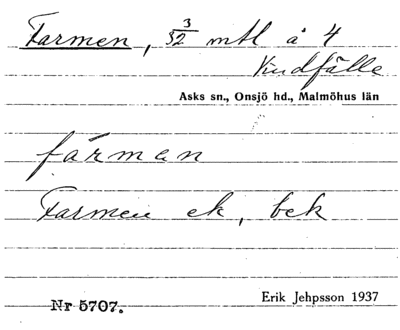 Farmen, 3/32 mtl å 4
Vindfälle
Asks sn., Onsjö hd., Malmöhus län
fárman
Farmen ek, bek
Nr 5707.
Erik Jehpsson 1937